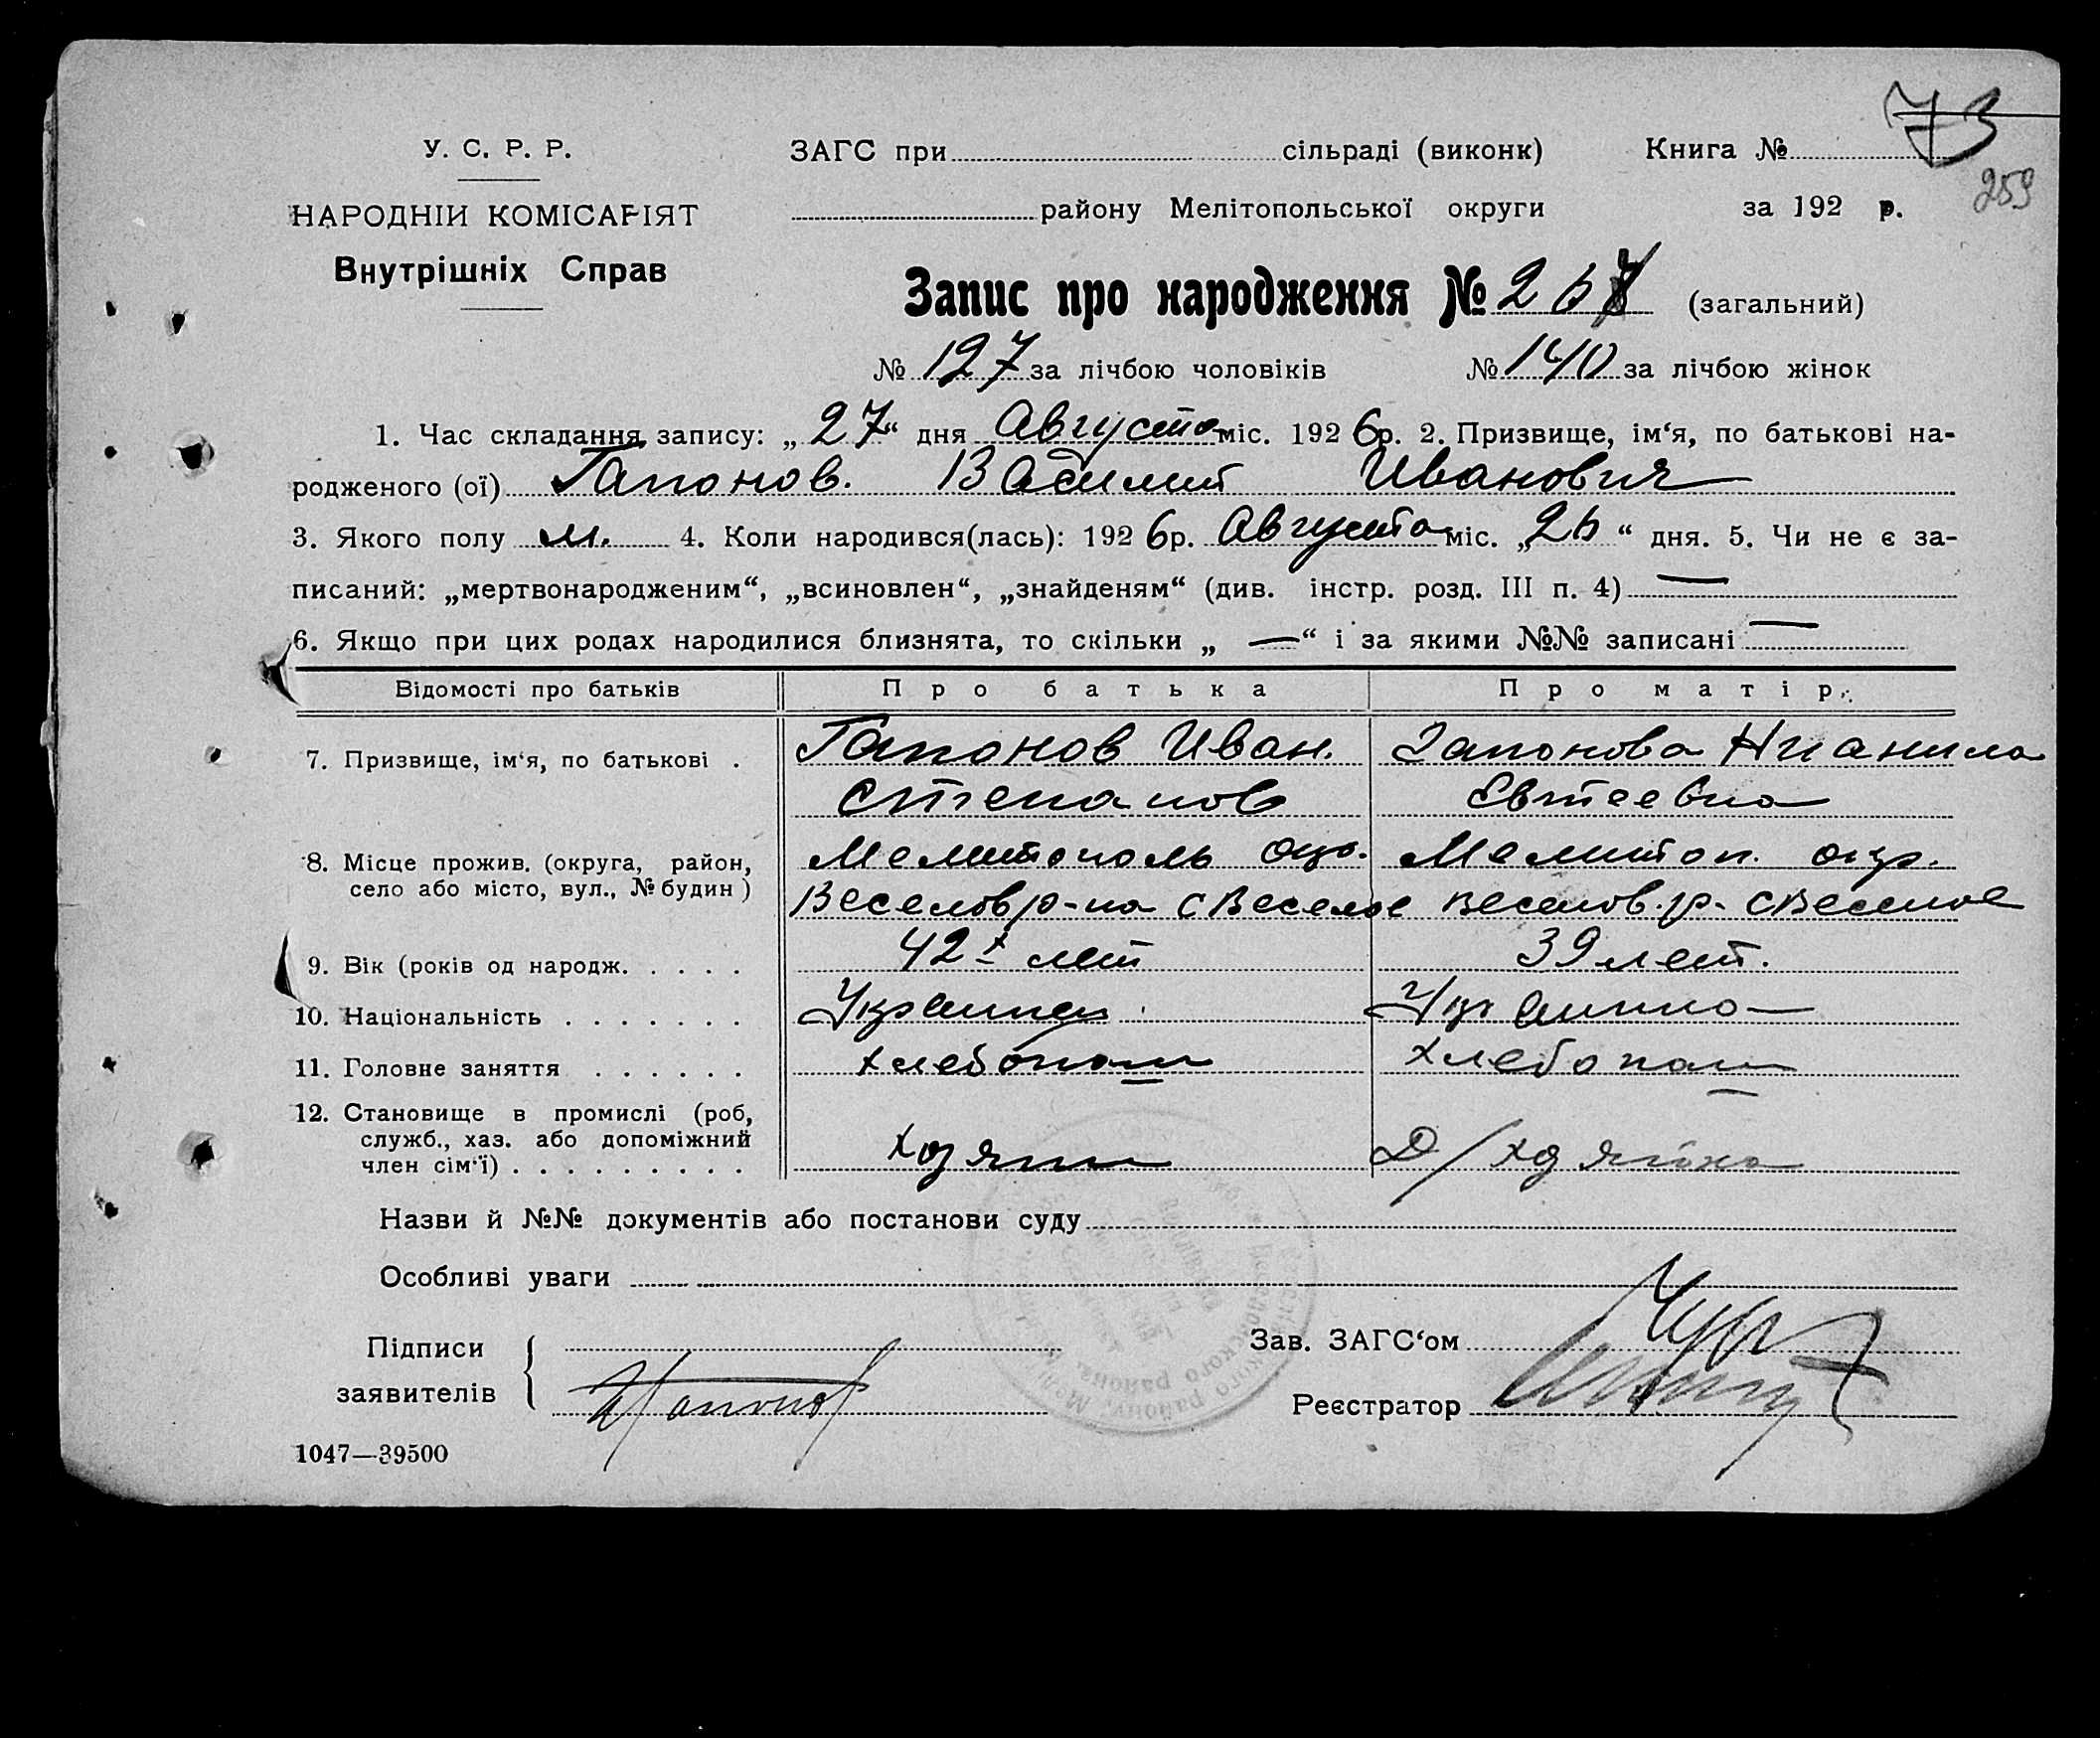 73
259
У. С. Р. Р.
НАРОДНІЙ КОМІСАРІЯТ
Внутрішніх Справ
ЗАГС при сільраді (виконк) Книга №
району Мелітопольської округи за 192 р.
Запис про народження № 267 (загальний)
№ 127 за лічбою чоловіків № 140 за лічбою жінок
1. Час складання запису: „27“ дня Августа міс. 1926 р. 2. Призвище, ім‘я, по батькові на-
родженого (ої) Гапонов. Вадимит Иванович
3. Якого полу м. 4. Коли народився(лась): 1926 р. Августа міс. „26“ дня. 5. Чи не є за-
писаний: „мертвонародженим“, „всиновлен“, „знайденям“ (див. інстр. розд. III п. 4) —
6. Якщо при цих родах народилися близнята, то скільки „ — “ і за якими №№ записані —
Відомості про батьків Про батька Про матір.
7. Призвище, ім‘я, по батькові . Гапонов Иван. Гапонова
Степанов Евтеевна
8. Місце прожив. (округа, район, Мелитополь окр. Мелитоп. окр.
село або місто, вул., № будин ) Веселов р-на с Веселое Веселов. р. с Веселое
9. Вік (років од народж. . . . . 42х лет 39 лет.
10. Національність . . . . . . . Украинец Украинка
11. Головне заняття . . . . . . Хлебопаш Хлебопаш
12. Становище в промислі (роб,
служб., хаз. або допоміжний
член сім‘ї) . . . . . . . . . Хозяин Д/хозяйка
Назви й №№ документів або постанови суду
Особливі уваги
Підписи
заявителів Гапонов
Зав. ЗАГС‘ом
Реєстратор
1047—39500